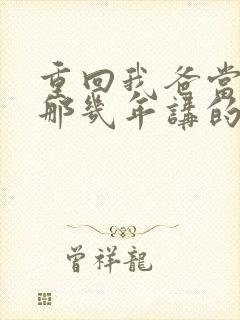 重回我爸當
那幾年講的
曾祥龍